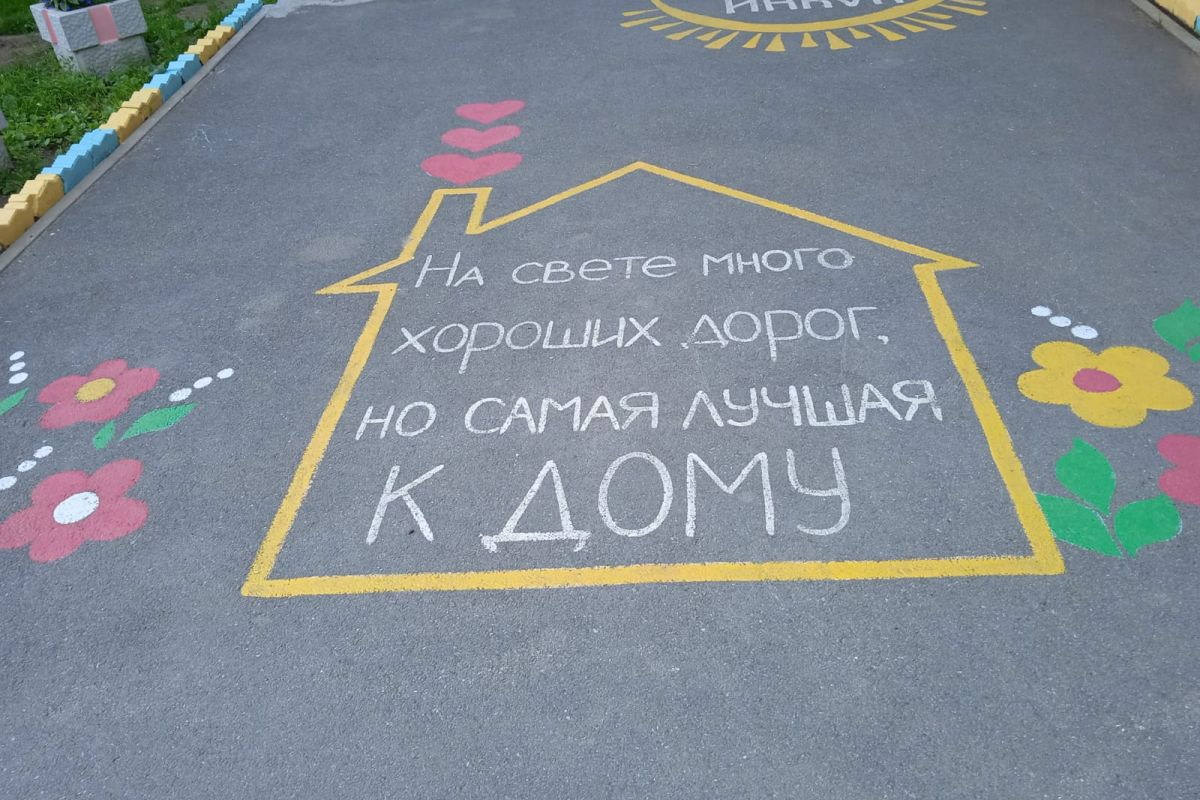 На свете много
хороших дорог,
но самая лучшая
к дому